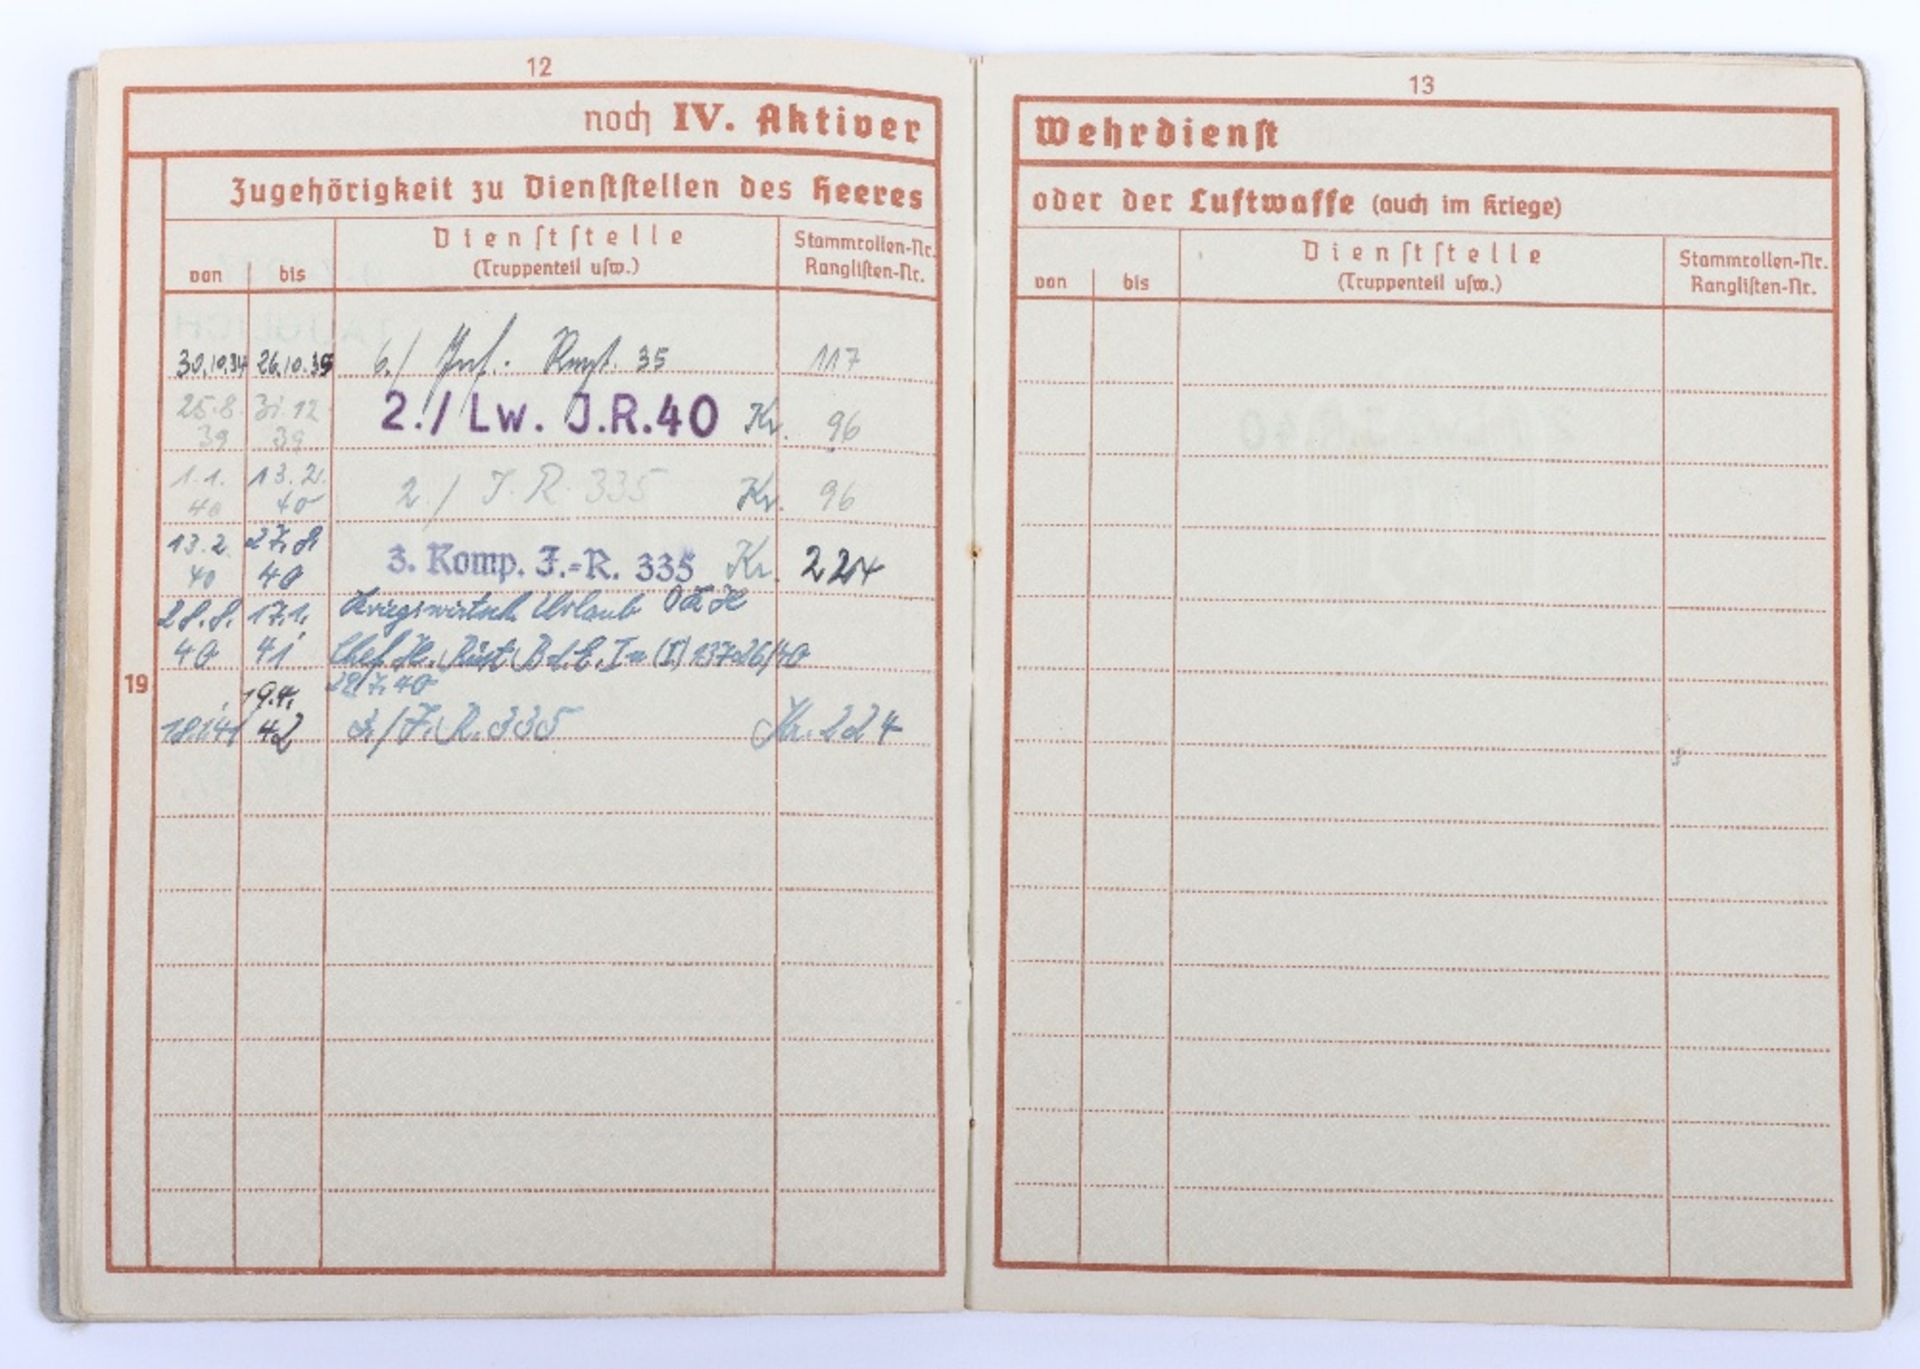 12
noch IV. Aktiver
Zugehörigkeit zu Dienststellen des Heeres
von bis Dienststelle (Truppenteil usw.) Stammrollen-Nr. Ranglisten-Nr.
30.10.34 26.10.35 6./ Inf. Rgt. 35 117
25.8. 39 31.12 39 2./ Lw. J.R.40 Kr. 96
1.1. 40 13.2. 40 2./ J.R. 335 Kr. 96
13.2. 40 27.8. 40 3. Komp. J.=R. 335 Kr. 224
28.8. 40 17.1. 41 Kriegswirtsch. Urlaub
Chef H. Rüst B.d.E. (I) 13726/40
29/7.40
19
18.1.41 19.4. 42 3./J.R. 335 Kr. 224
13
Wehrdienst
oder der Luftwaffe (auch im Kriege)
von bis Dienststelle (Truppenteil usw.) Stammrollen-Nr. Ranglisten-Nr.